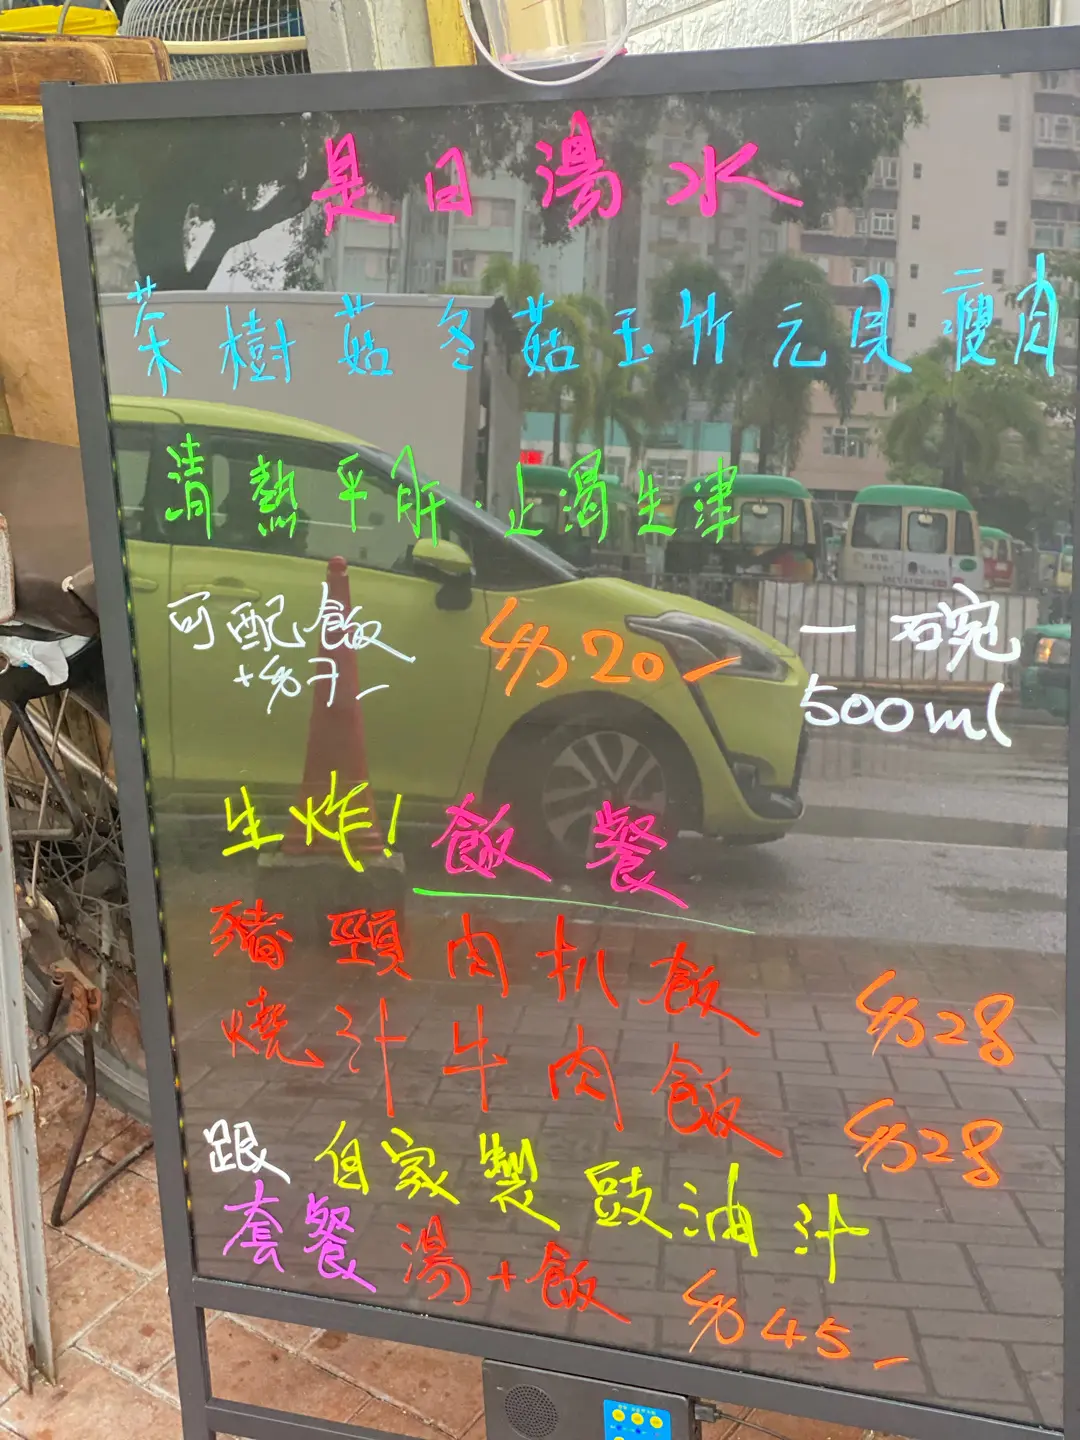 是日湯水
茶樹菇冬菇玉竹元貝瘦肉
清熱平肝·止渴生津
可配飯 $20- 一碗
+$7- 500ml
生炸! 飯餐
豬頸肉扒飯 $28
燒汁牛肉飯 $28
跟自家製豉油汁
套餐湯+飯 $45-